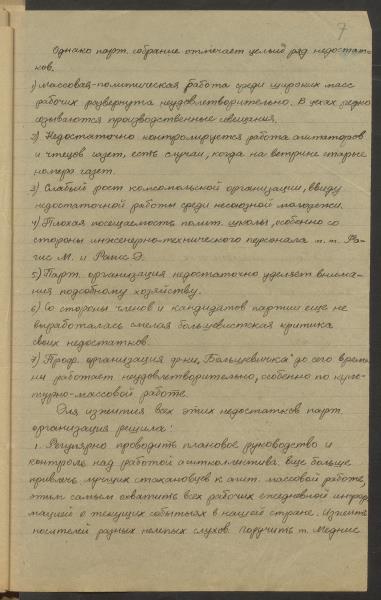 7
Однако парт. собрание отмечает целый ряд недостат-
ков.
1) Массовая-политическая работа среди широких масс
рабочих развернута неудовлетворительно. В цехах редко
созываются производственные совещания.
2) Недостаточно контролируется работа агитаторов
и чтецов газет, есть случаи, когда на ветрине старые
номера газет.
3) Слабый рост комсомольской организации, ввиду
недостаточной работы среди несоюзной молодежи.
4) Плохая посещаемость полит. школы, особенно со
стороны инженерно-технического персонала т.т. Ра-
гис М. и Раис Э.
5) Парт. организация недостаточно уделяет внима-
ния подсобному хозяйству.
6) Со стороны членов и кандидатов партии еще не
выработалась смелая большевистская критика
своих недостатков.
7) Проф. организация ф-ки "Большевичка" до сего време-
ни работает неудовлетворительно, особенно по куль-
турно-массовой работе.
Для изжития всех этих недостатков парт.
организация решила:
1. Регулярно проводить плановое руководство и
контроль над работой агитколлектива. Еще больше
привлечь лучших стахановцев к агит. массовой работе,
этим самым охватить всех рабочих ежедневной инфор-
мацией о текущих событиях в нашей стране. Изжить
носителей разных нелепых слухов. Поручить т.